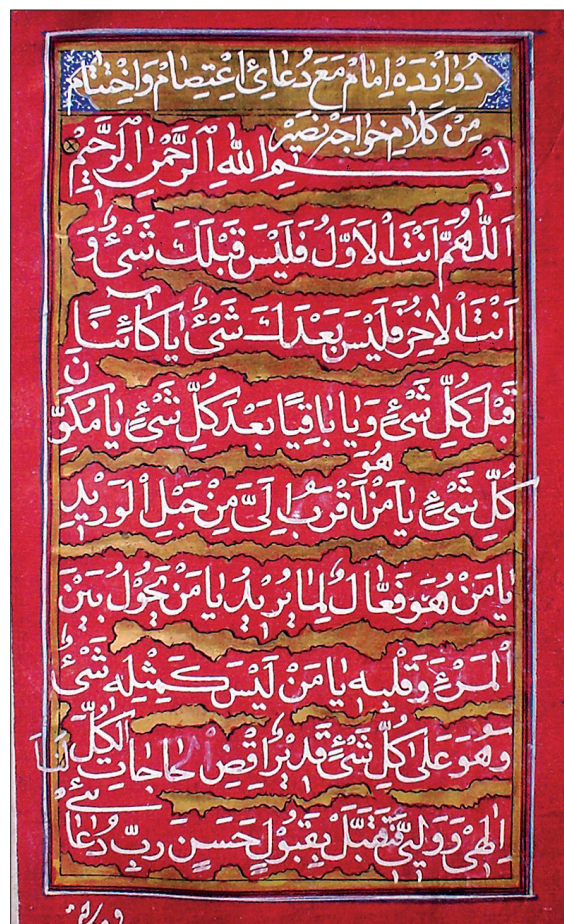 دُوٰانْدَهْ اِمٰامْ مَعَ دُعٰایِٔ اِعْتِصٰامْ وَاخْتِتٰامْ
مِنْ كَلٰامِ خواجه نَصِیْرْ
بِسْــــمِ اللّٰهِ الرَّحْمٰنِ الرَّحِيْمِ
اَللّٰهُمَّ اَنْتَ الْاَوَّلُ فَلَيْسَ قَبْلَكَ شَیْءٌ وَ
اَنْتَ الْاٰخِرُ فَلَيْسَ بَعْدَكَ شَیْءٌ يٰا كٰائِنًا
قَبْلَ كُلِّ شَیْءٍ وَيٰا بٰاقِيًا بَعْدَ كُلِّ شَیْءٍ يٰا مُكَوِّنَ
كُلِّ شَیْءٍ يٰا مَنْ هُوَ اَقْرَبُ اِلَیَّ مِنْ حَبْلِ الْوَرِيْدِ
يٰا مَنْ هُوَ فَعّٰالٌ لِمٰا يُرِيْدُ يٰا مَنْ يَحُوْلُ بَيْنَ
الْمَرْءِ وَقَلْبِهِ يٰا مَنْ لَيْسَ كَمِثْلِهِ شَیْءٌ
وَهُوَ عَلٰى كُلِّ شَیْءٍ قَدِيْرٌ اِقْضِ حٰاجٰاتِ الْكُلِّ
اِلٰهِیْ وَوَلِيِّیْ فَتَقَبَّلْ بِقَبُوْلٍ حَسَنٍ رَبِّ دُعٰائِیْ